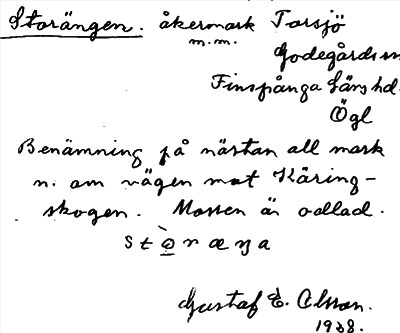 Storängen. åkermark Torsjö
m.m.
Godegårds sn
Finspånga läns hd.
Ögl
Benämning på nästan all mark
n. om vägen mot Käring-
skogen. Mossen är odlad.
Gustaf E. Olsson.
1938.